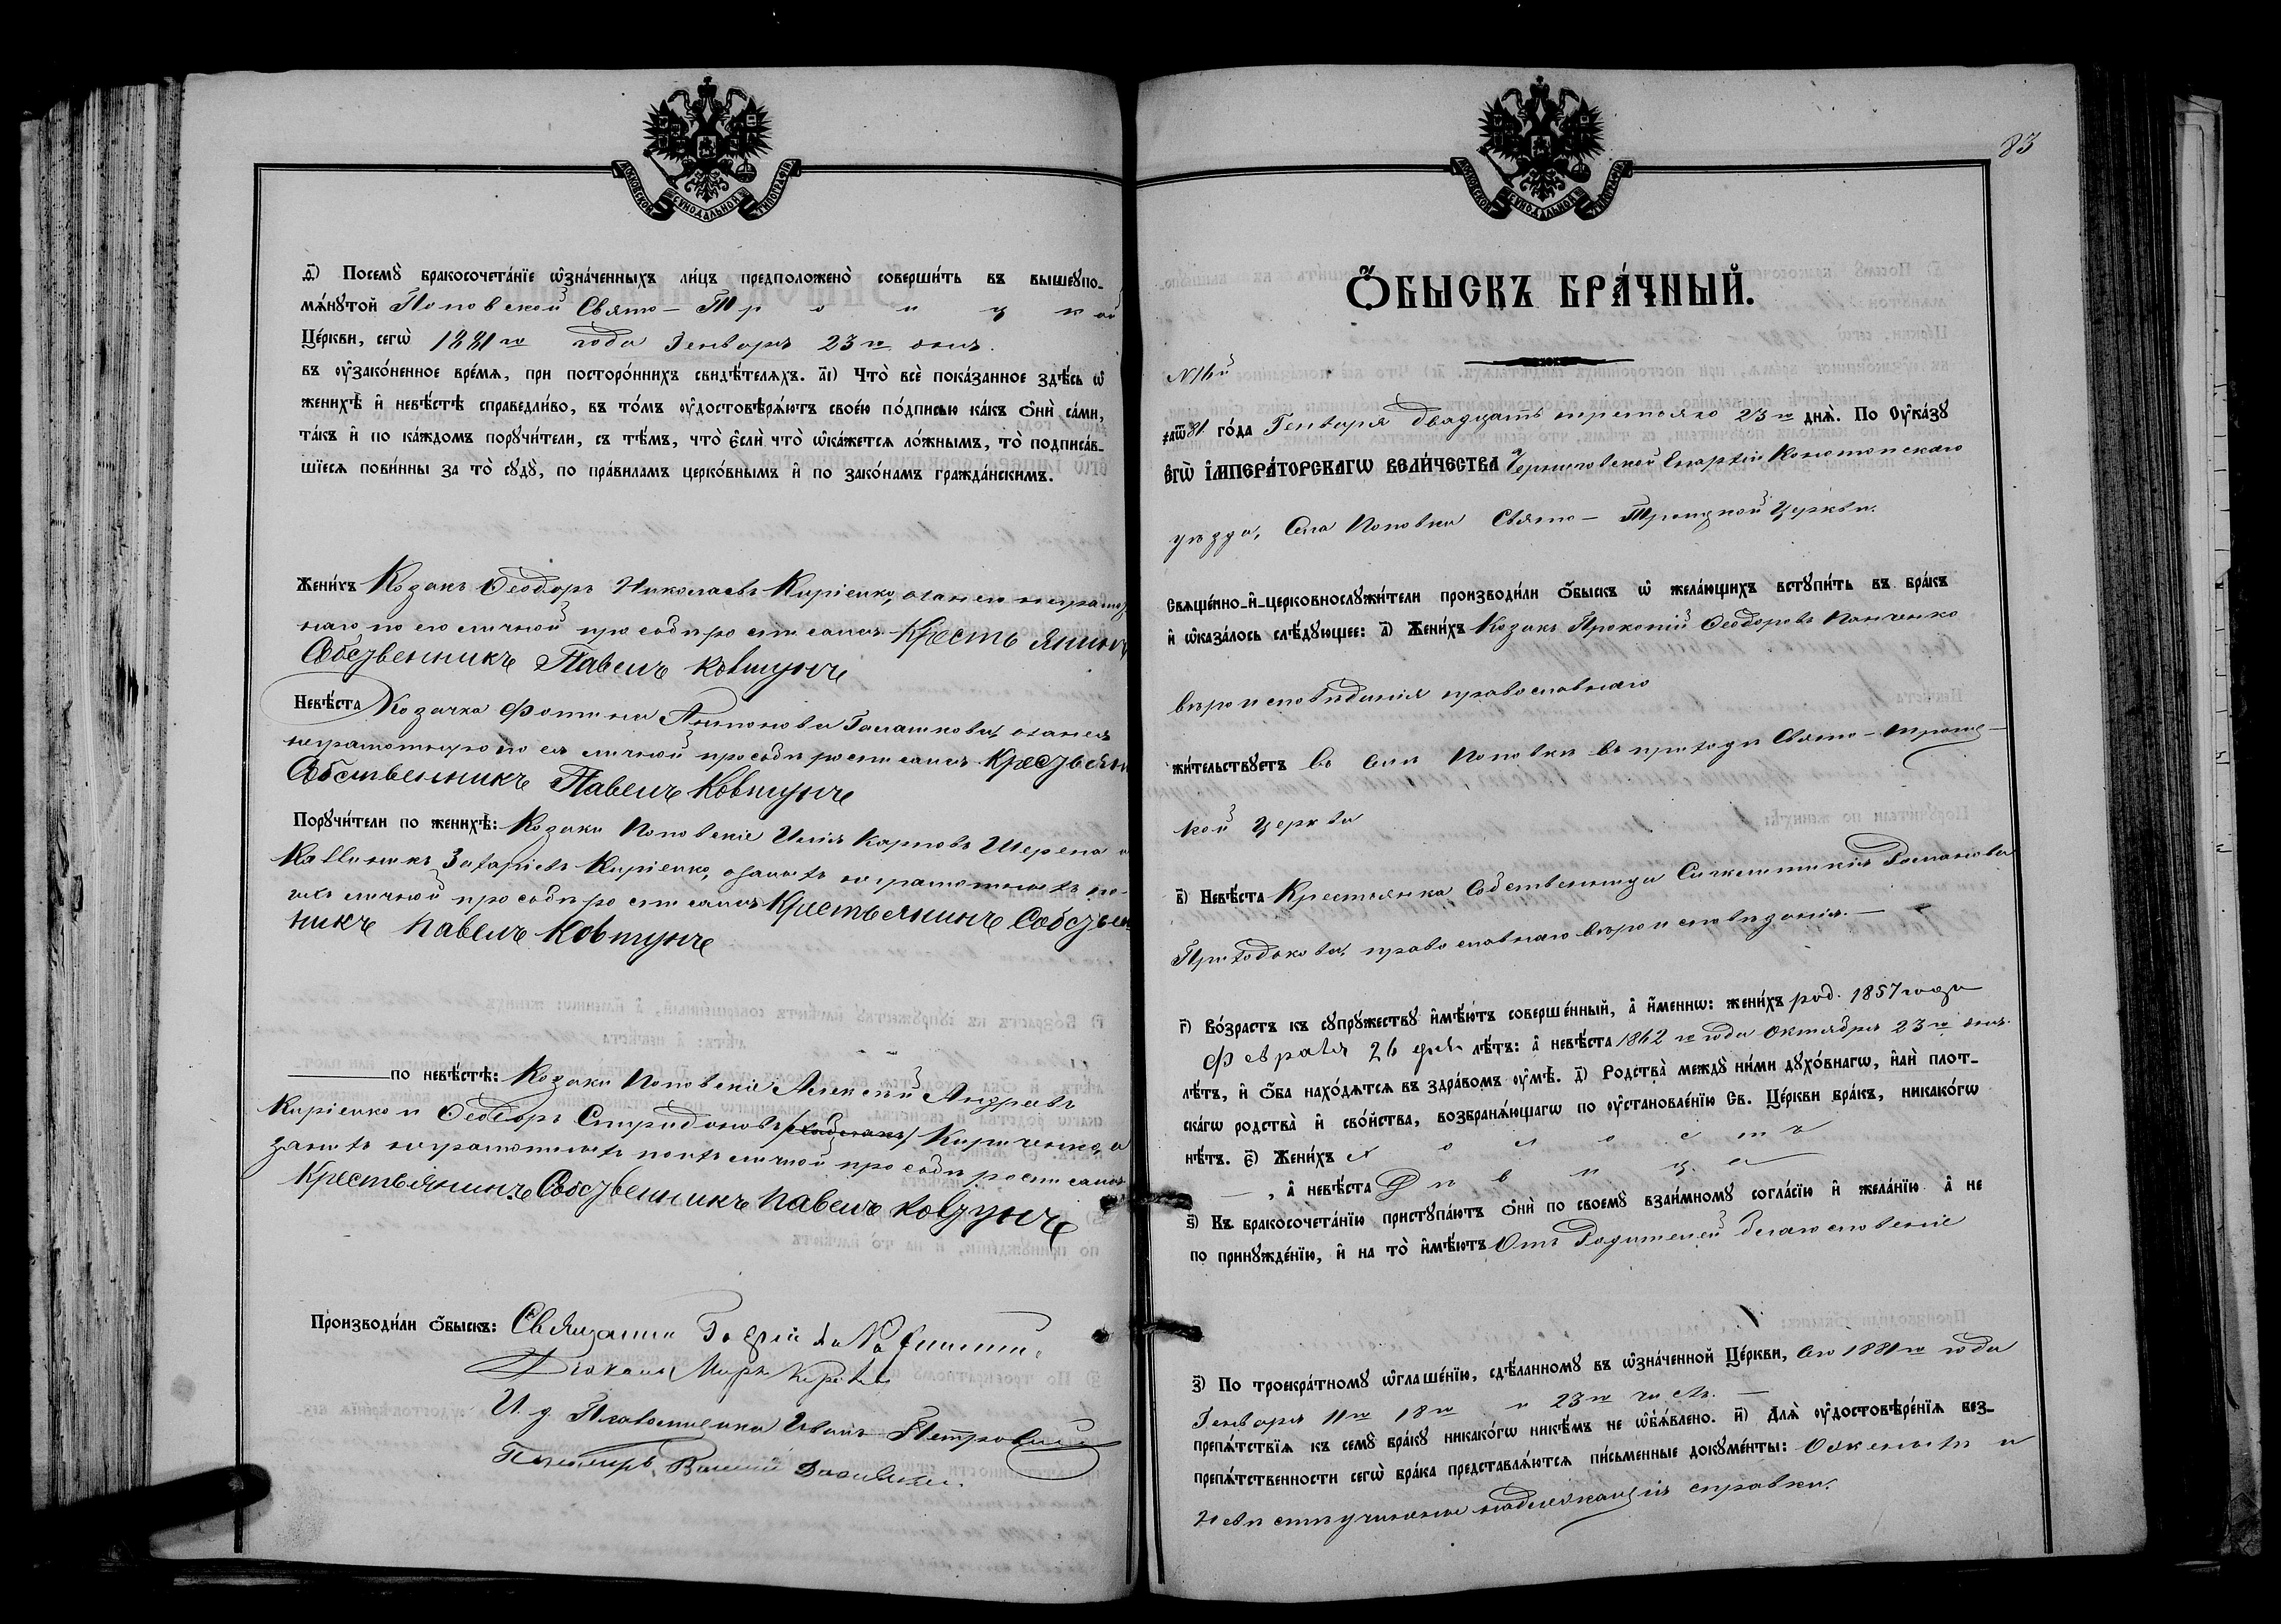 МОСКОВСКОЙ СѴНОДАЛЬНОЙ ТИПОГРАФІИ
і҃) Посемꙋ̀ бракосочета́нїе ѡ҆зна́ченныхъ ли́цъ предположено̀ соверши́ть въ вышеꙋпо-
мѧ́нꙋтой Поповской Свято-Троицкой
Це́ркви, сегѡ̀ 1881го года Генваря 23го дня.
въ ᲂу҆зако́ненное вре́мѧ, при посторо́ннихъ свидѣ́телѧхъ. а҃і) Что̀ всѐ пока́занное здѣ́сь ѡ҆
женихѣ̀ и҆ невѣ́стѣ справедли́во, въ то́мъ ᲂу҆достовѣрѧ́ютъ свое́ю по́дписью ка́къ ѻ҆нѝ са́ми,
та́къ и҆ по ка́ждомъ порꙋчи́тели, съ тѣ́мъ, что̀ є҆́сли что̀ ѡ҆ка́жетсѧ ло́жнымъ, то̀ подписа́в-
шїесѧ пови́нны за то̀ сꙋдꙋ̀, по пра́виламъ церко́внымъ и҆ по зако́намъ гражда́нскимъ.
Жени́хъ Козакъ Ѳеодоръ Николаевъ Киріенко, а за него неграмот
наго по его личной прозьбѣ росписался Крестьянинъ
Собсзвенникъ Павелъ Ковтунъ
Невѣ́ста Козачка Фотина Антонова Галашкова, а за нея
неграмотную по ея личной прозьбѣ росписался Кресзьянин
Собственникъ Павелъ Ковтунъ
Порꙋчи́тели по женихѣ̀: Козаки Поповскіе Илія Карповъ Шерепа и
Каллиникъ Захаріевъ Кирієнко, а за нихъ неграмотныхъ по
ихъ личной прозьбѣ росписался Крестьянинъ Собсзвен
никъ Павелъ Ковтунъ
по невѣ́стѣ: Козаки Поповскіе Алексѣй Андреевъ
Кирієнко и Ѳеодоръ Спиридоновъ Кириченко, а
за нихъ неграмотныхъ по ихъ личной прозьбѣ росписался
Крестьянинъ Собсзвенникъ Павелъ Ковзунъ
Производи́ли ѻ҆́быскъ: Священникъ
Діаконъ Маркъ
И. д. Псаломщика Иванъ Петровскій
Пономарь Василій
83
МОСКОВСКОЙ СѴНОДАЛЬНОЙ ТИПОГРАФІИ
Ѻ҆́БЫСКЪ БРА́ЧНЫЙ.
N 16й
҂аѿ81 го́да Генваря двадцать третьяго 23го днѧ̀. По Оу҆ка́зꙋ
Є҆гѡ̀ І҆мпера́торскагѡ Вели́чества Черниговской Епархіи Конотопскаго
уѣзда, Села Поповки Свято-Троицкой Церкви.
Свѧще́нно-и҆-церковнослꙋжи́тели производи́ли ѻ҆́быскъ ѡ҆ жела́ющихъ встꙋпи́ть въ бра́къ
и҆ ѡ҆каза́лось слѣ́дꙋющее: а҃) Жени́хъ Козакъ Прокопій Ѳеодоровъ Панченко
вѣроисповѣданія православнаго
жи́тельствꙋетъ въ селѣ Поповки въ приходѣ Свято-Троиц-
кой Церкви
в҃) Невѣ́ста Крестьянка Собственница Синклитикія Романова
Приходькова, православнаго вѣроисповѣданія.
г҃) Во́зрастъ къ сꙋпрꙋ́жествꙋ и҆мѣ́ютъ соверше́нный, а҆ и҆́меннѡ: жени́хъ род. 1857 года
Февраля 26 дня лѣ́тъ: а҆ невѣ́ста 1862го года Октября 23го дня.
лѣ́тъ, и҆ ѻ҆́ба нахо́дѧтсѧ въ здра́вомъ ᲂу҆мѣ̀. д҃) Родства̀ междꙋ̀ ни́ми дꙋхо́внагѡ, и҆лѝ плот-
ска́гѡ родства̀ и҆ сво́йства, возбранѧ́ющагѡ по ᲂу҆становле́нїю Св. Це́ркви бра́къ, никако́гѡ
нѣ́тъ. є҃) Жени́хъ холостъ
, а҆ невѣ́ста Дѣвица
ѕ҃) Къ бракосочета́нїю пристꙋпа́ютъ ѻ҆нѝ по своемꙋ̀ взаи́мномꙋ согла́сїю и҆ жела́нїю а҆ не
по принꙋжде́нїю, и҆ на то̀ и҆мѣ́ютъ Отъ Родителей благословеніе
з҃) По троекра́тномꙋ ѡ҆глаше́нїю, сдѣ́ланномꙋ въ ѡ҆зна́ченной Це́ркви, сего 1881го года
Генваря 11го 18го и 23го числ.
препѧ́тствїѧ къ семꙋ̀ бра́кꙋ никако́гѡ никѣ́мъ не ѡ҆б̾ѧ́влено. и҃) Длѧ̀ ᲂу҆достовѣре́нїѧ без-
препѧ́тственности сегѡ̀ бра́ка представлѧ́ютсѧ пи́сьменные докꙋме́нты: О женихѣ и
невѣстѣ учинены надлежащія справки.